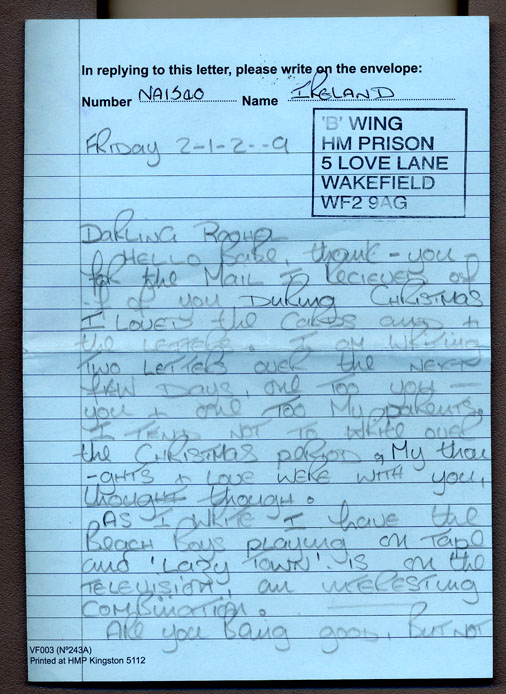 In replying to this letter, please write on the envelope:
Number NA1540 Name IRELAND
'B' WING
HM PRISON
5 LOVE LANE
WAKEFIELD
WF2 9AG
FRIDAY 2-1-2--9
DARLING
HELLO Babe, thank-you
for the MAIL I RECIEVED
of you DURING CHRISTMAS
I LOVED the CARDS and +
the LETTERS. I am WRITING
TWO LETTERS OVER the NEXT
few DAYS, one Too you —
you + one Too My parents,
I TEND NOT TO WRITE over
the CHRISTMAS period, My thou
-ghts + LOVE WERE WITH you,
thought though.
AS I WRITE I have the
BEACH BOYS playing on TAPE
and 'LAZY TOWN' IS on the
TELEVISION, an INTERESTING
COMBINATION.
ARE you Being good, BUT NOT
VF003 (Nº243A)
Printed at HMP Kingston 5112